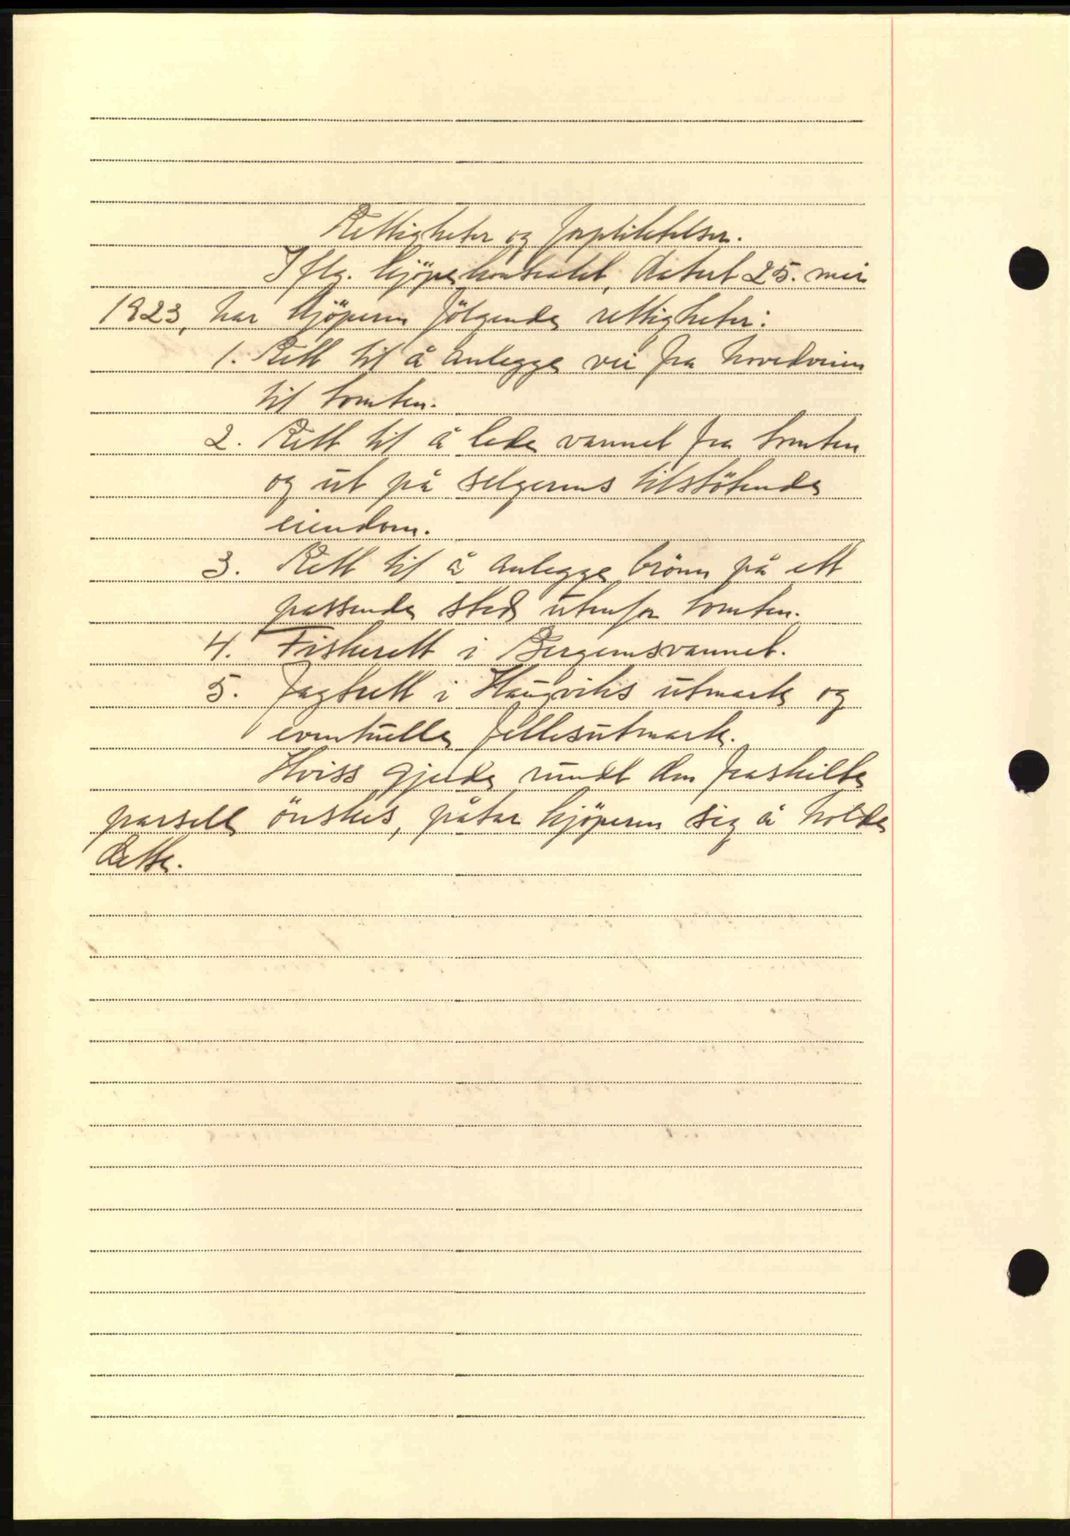 Rettigheter og forpliktelser.
Iflg. kjøpekontrakt, datert 25. mai
1923, har kjøperen følgende rettigheter:
1. Rett til å anlegge vei fra hovedveien
til tomten.
2. Rett til å lede vannet fra tomten
og ut på selgerens tilstøtende
eiendom.
3. Rett til å anlegge brønn på ett
passende sted utenfor tomten.
4. Fiskerett i Bergemsvannet.
5. Jagtrett i Haugviks utmark og
eventuelle fellesutmark.
Hviss gjerde rundt den fraskilte
parsell ønskes, påtar kjøperen sig å holde
dette.